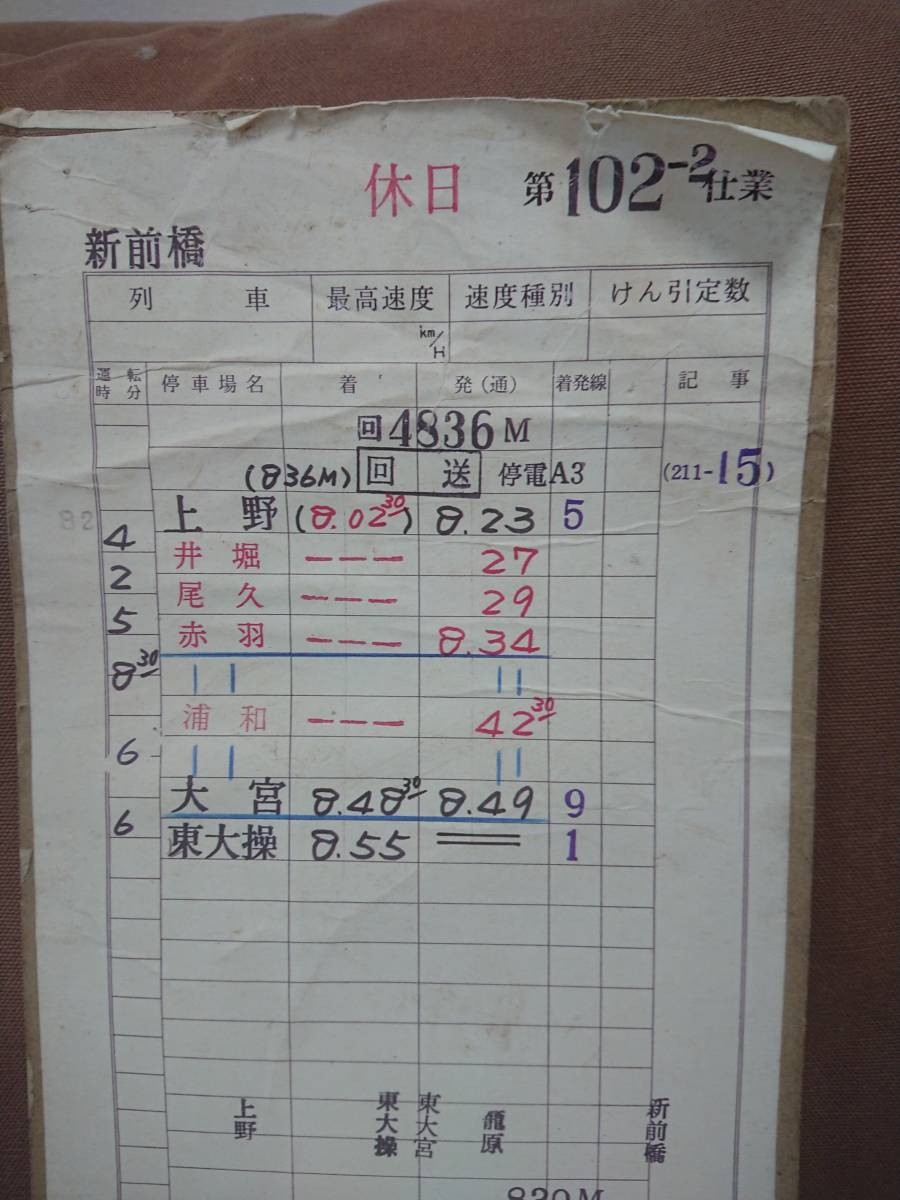 休日 第102-2仕業
新前橋
列 車 最高速度 速度種別 けん引定数
km/H
運転時分 停車場名 着 発(通) 着発線 記事
回4836M
(836M) 回送 停電A3 (211-15)
82 上野 (8.02 30) 8.23 5
4 井堀 --- 27
2 尾久 --- 29
5 赤羽 --- 8.34
8 30 || ||
浦和 --- 42 30
6 || ||
大宮 8.48 30 8.49 9
6 東大操 8.55 == 1
上野 東大操 東大宮 籠原 新前橋
839M